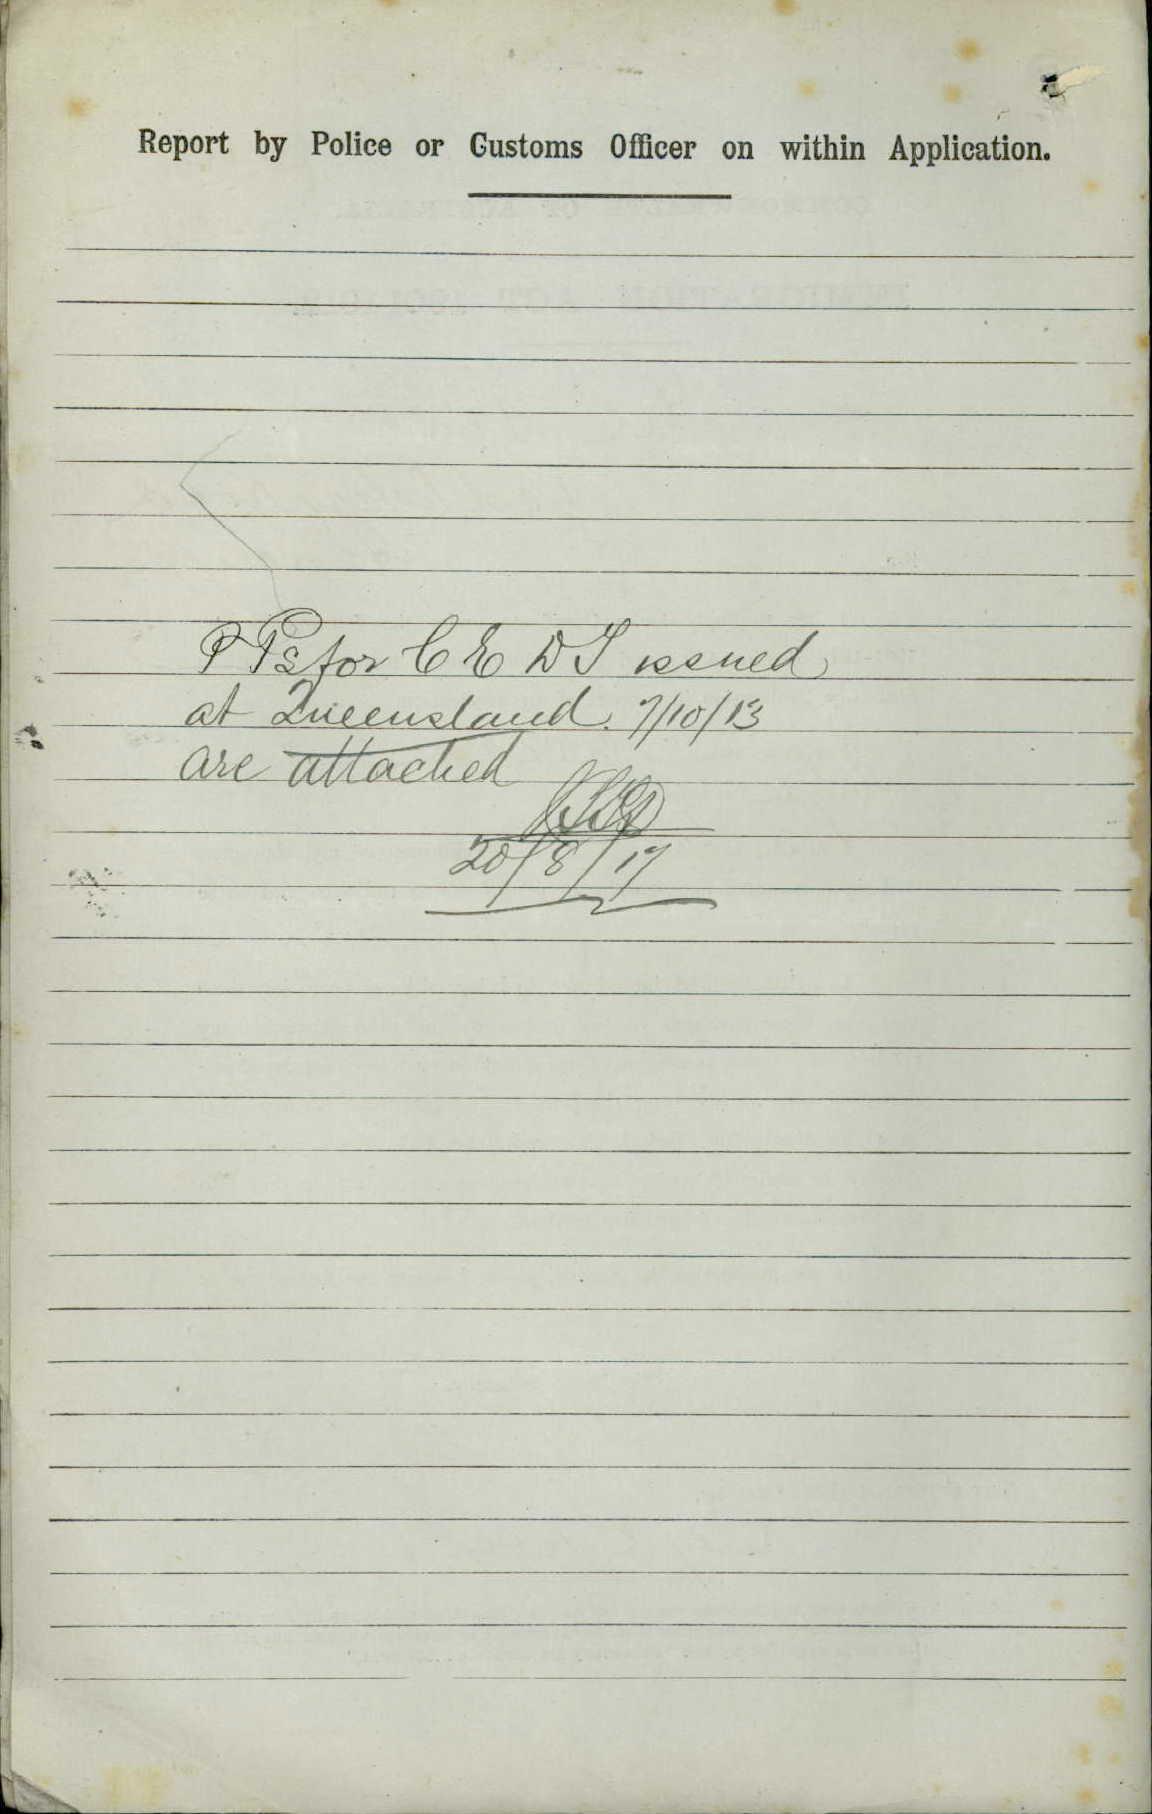 Report by Police or Customs Officer on within Application.
P Ps for C E D T issued
at Queensland 7/10/13
are attached
20/8/17